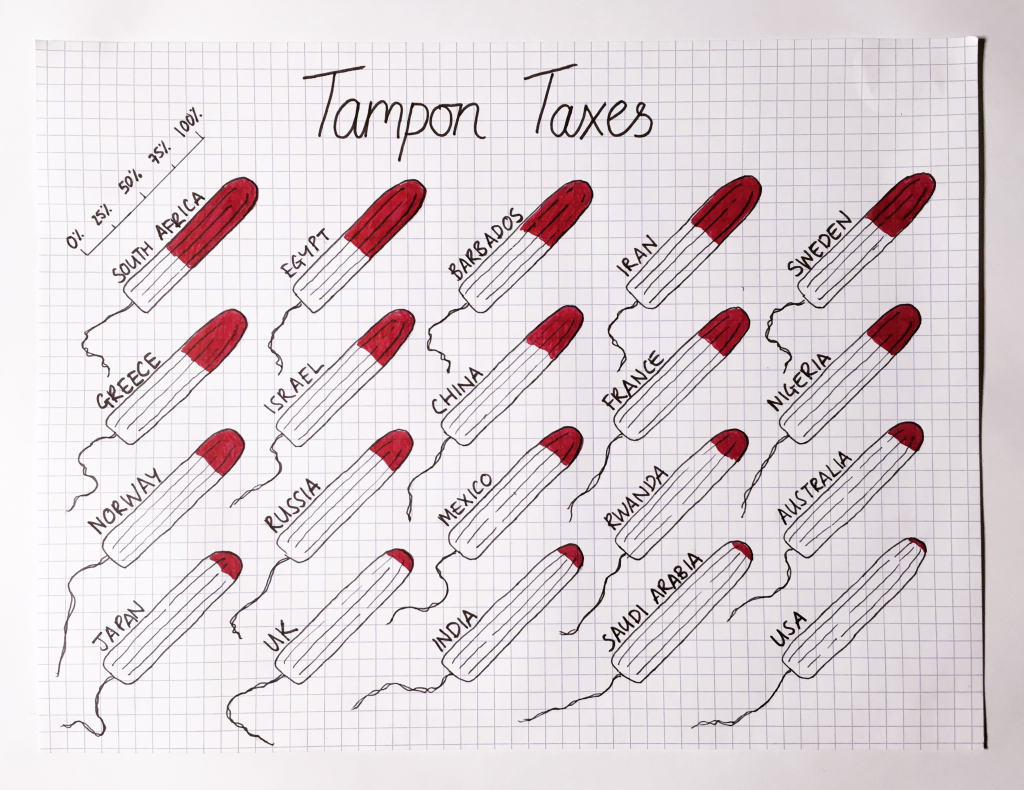 Tampon Taxes
0% 25% 50% 75% 100%
SOUTH AFRICA
EGYPT
BARBADOS
IRAN
SWEDEN
GREECE
ISRAEL
CHINA
FRANCE
NIGERIA
NORWAY
RUSSIA
MEXICO
RWANDA
AUSTRALIA
JAPAN
UK
INDIA
SAUDI ARABIA
USA